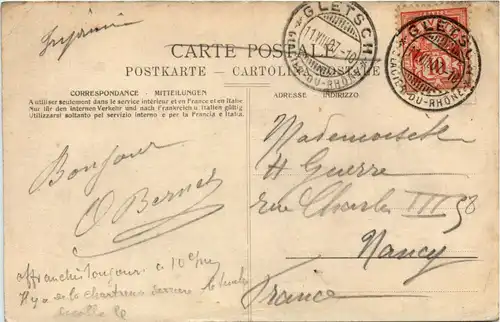 Imprimé
CARTE POSTALE
POSTKARTE - CARTOLINA POSTALE
GLETSCH
11.VIII.07.-10
GLACIER-DU-RHÔNE
GLETSCH
GLACIER-DU-RHÔNE
CORRESPONDANCE - MITTEILUNGEN
A utiliser seulement dans le service intérieur et en France et en Italie
Nur für den internen Verkehr und nach Frankreich u. Italien gültig
Utilizzarsi soltanto pel servizio interno e per la Francia e Italia.
ADRESSE INDIRIZZO
Bonjour
O Bernet
Mademoiselle
H Guerre
rue Charles III 58
Nancy
France
affranchis toujours à 10 c/m
Il y a de la chartreuse derrière le timbre